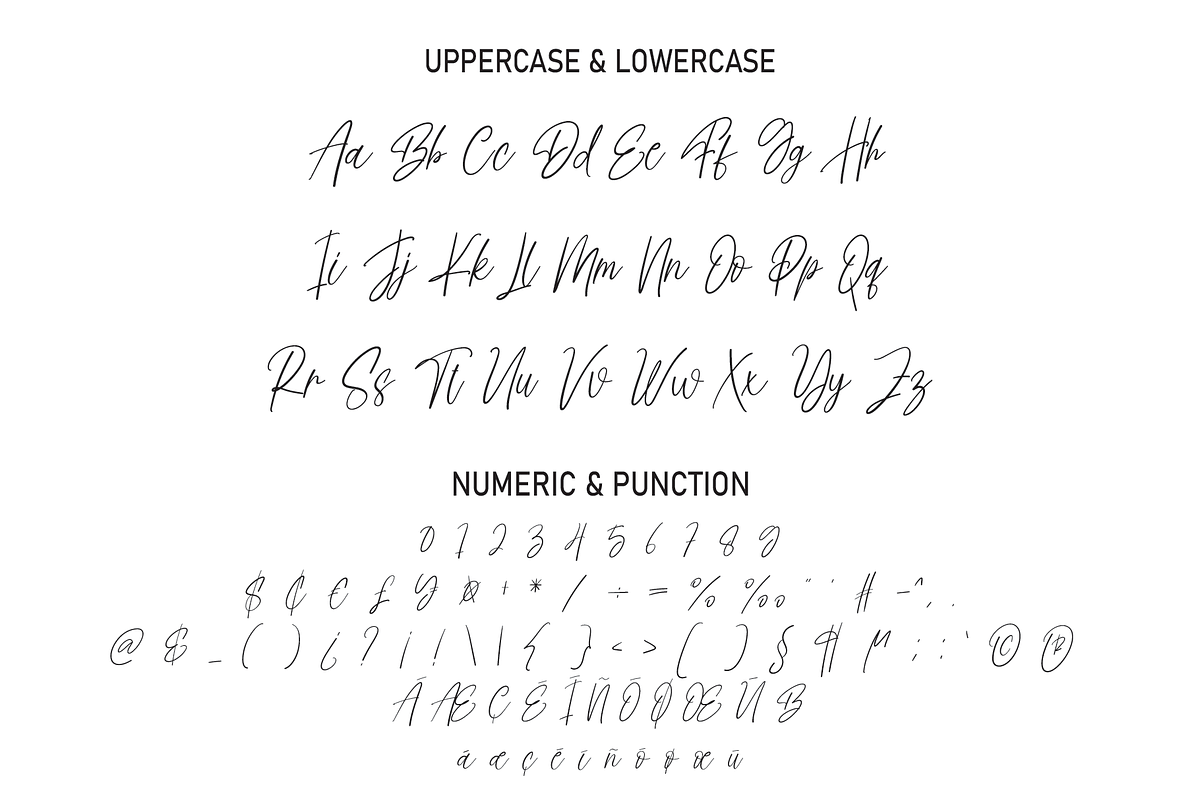 UPPERCASE & LOWERCASE
Aa Bb Cc Dd Ee Ff Gg Hh
Ii Jj Kk Ll Mm Nn Oo Pp Qq
Rr Ss Tt Uu Vv Ww Xx Yy Zz
NUMERIC & PUNCTION
0 1 2 3 4 5 6 7 8 9
$ ¢ € £ + * / ÷ = % ‰ " ' # - ^ , .
@ & _ ( ) ¿ ? ¡ ! \ | { } < > [ ] § ¶ µ ; : ` © ®
Æ Ç Ñ Ø Œ
á æ ç é í ñ ó ø œ ú